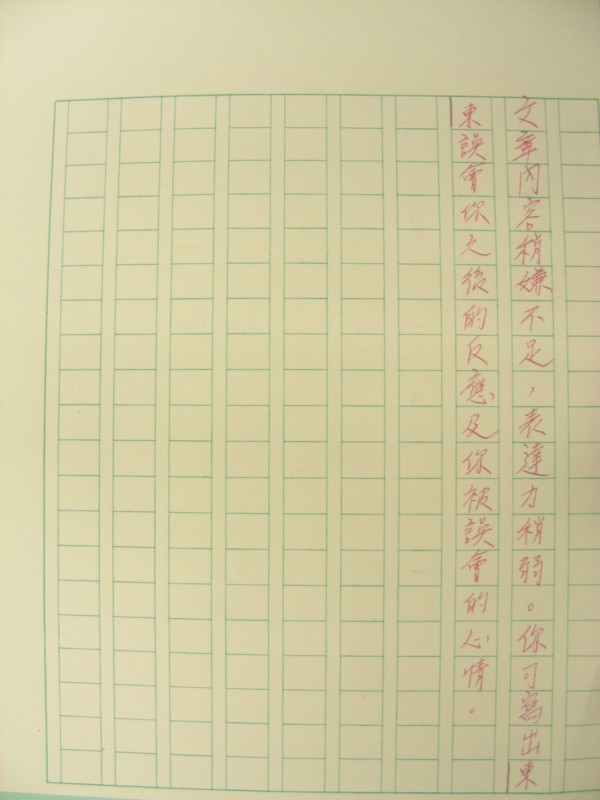 文章內容稍嫌不足，表達力稍弱。你可寫出東
東誤會你之後的反應及你被誤會的心情。